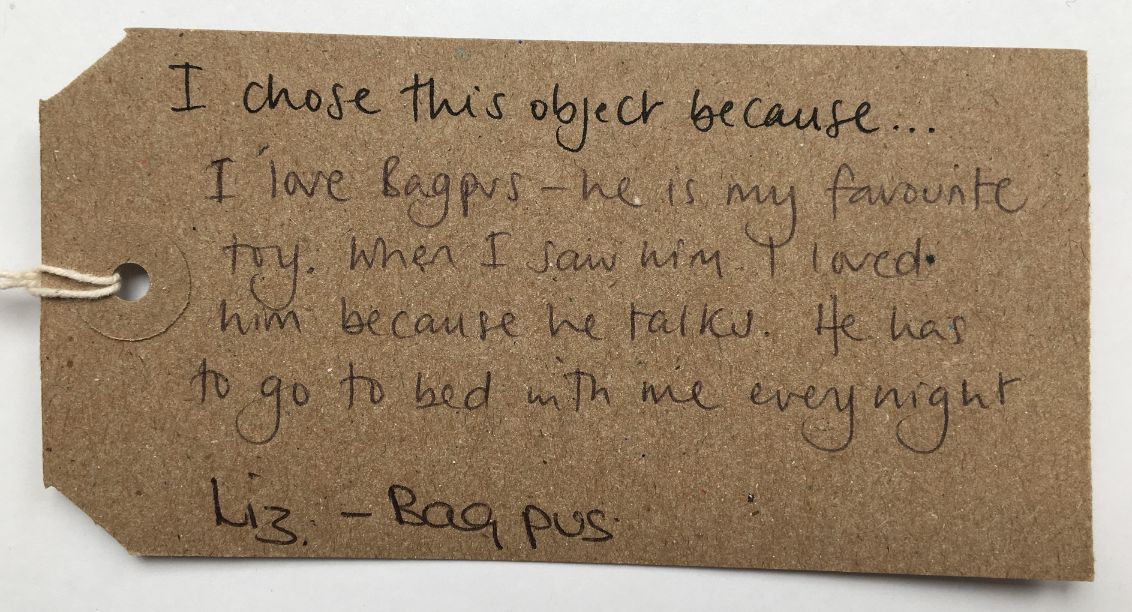 I chose this object because...
I love Bagpus - he is my favourite
toy. When I saw him I loved
him because he talks. He has
to go to bed with me every night
Liz. - Bagpus